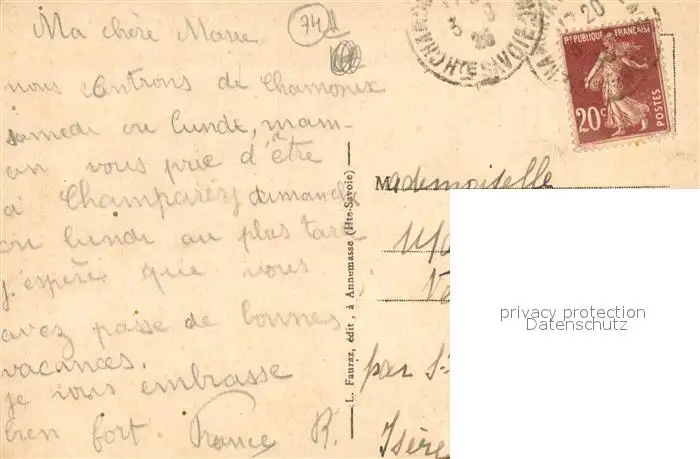 Ma chère Marie
nous rentrons de Chamonix
samedi ou lundi, mam-
an vous prie d'être
à Champarey dimanche
ou lundi au plus tard
j'espère que vous
avez passé de bonnes
vacances.
je vous embrasse
bien fort. France R.
74
L. Fauraz, édit., à Annemasse (Hte-Savoie)
HTE SAVOIE
20
RÉPUBLIQUE FRANÇAISE
20c
POSTES
Mademoiselle
par St
Isère
privacy protection
Datenschutz